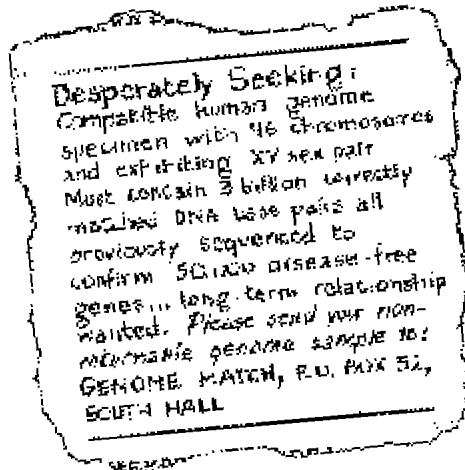 Desperately Seeking:
Compatible human genome
specimen with 46 chromosomes
and exhibiting XY sex pair
Must contain 3 billion correctly
matched DNA base pairs all
previously sequenced to
confirm 50,000 disease-free
genes... long-term relationship
wanted. Please send your non-
returnable genome sample to:
GENOME MATCH, P.O. BOX 52,
SOUTH HALL